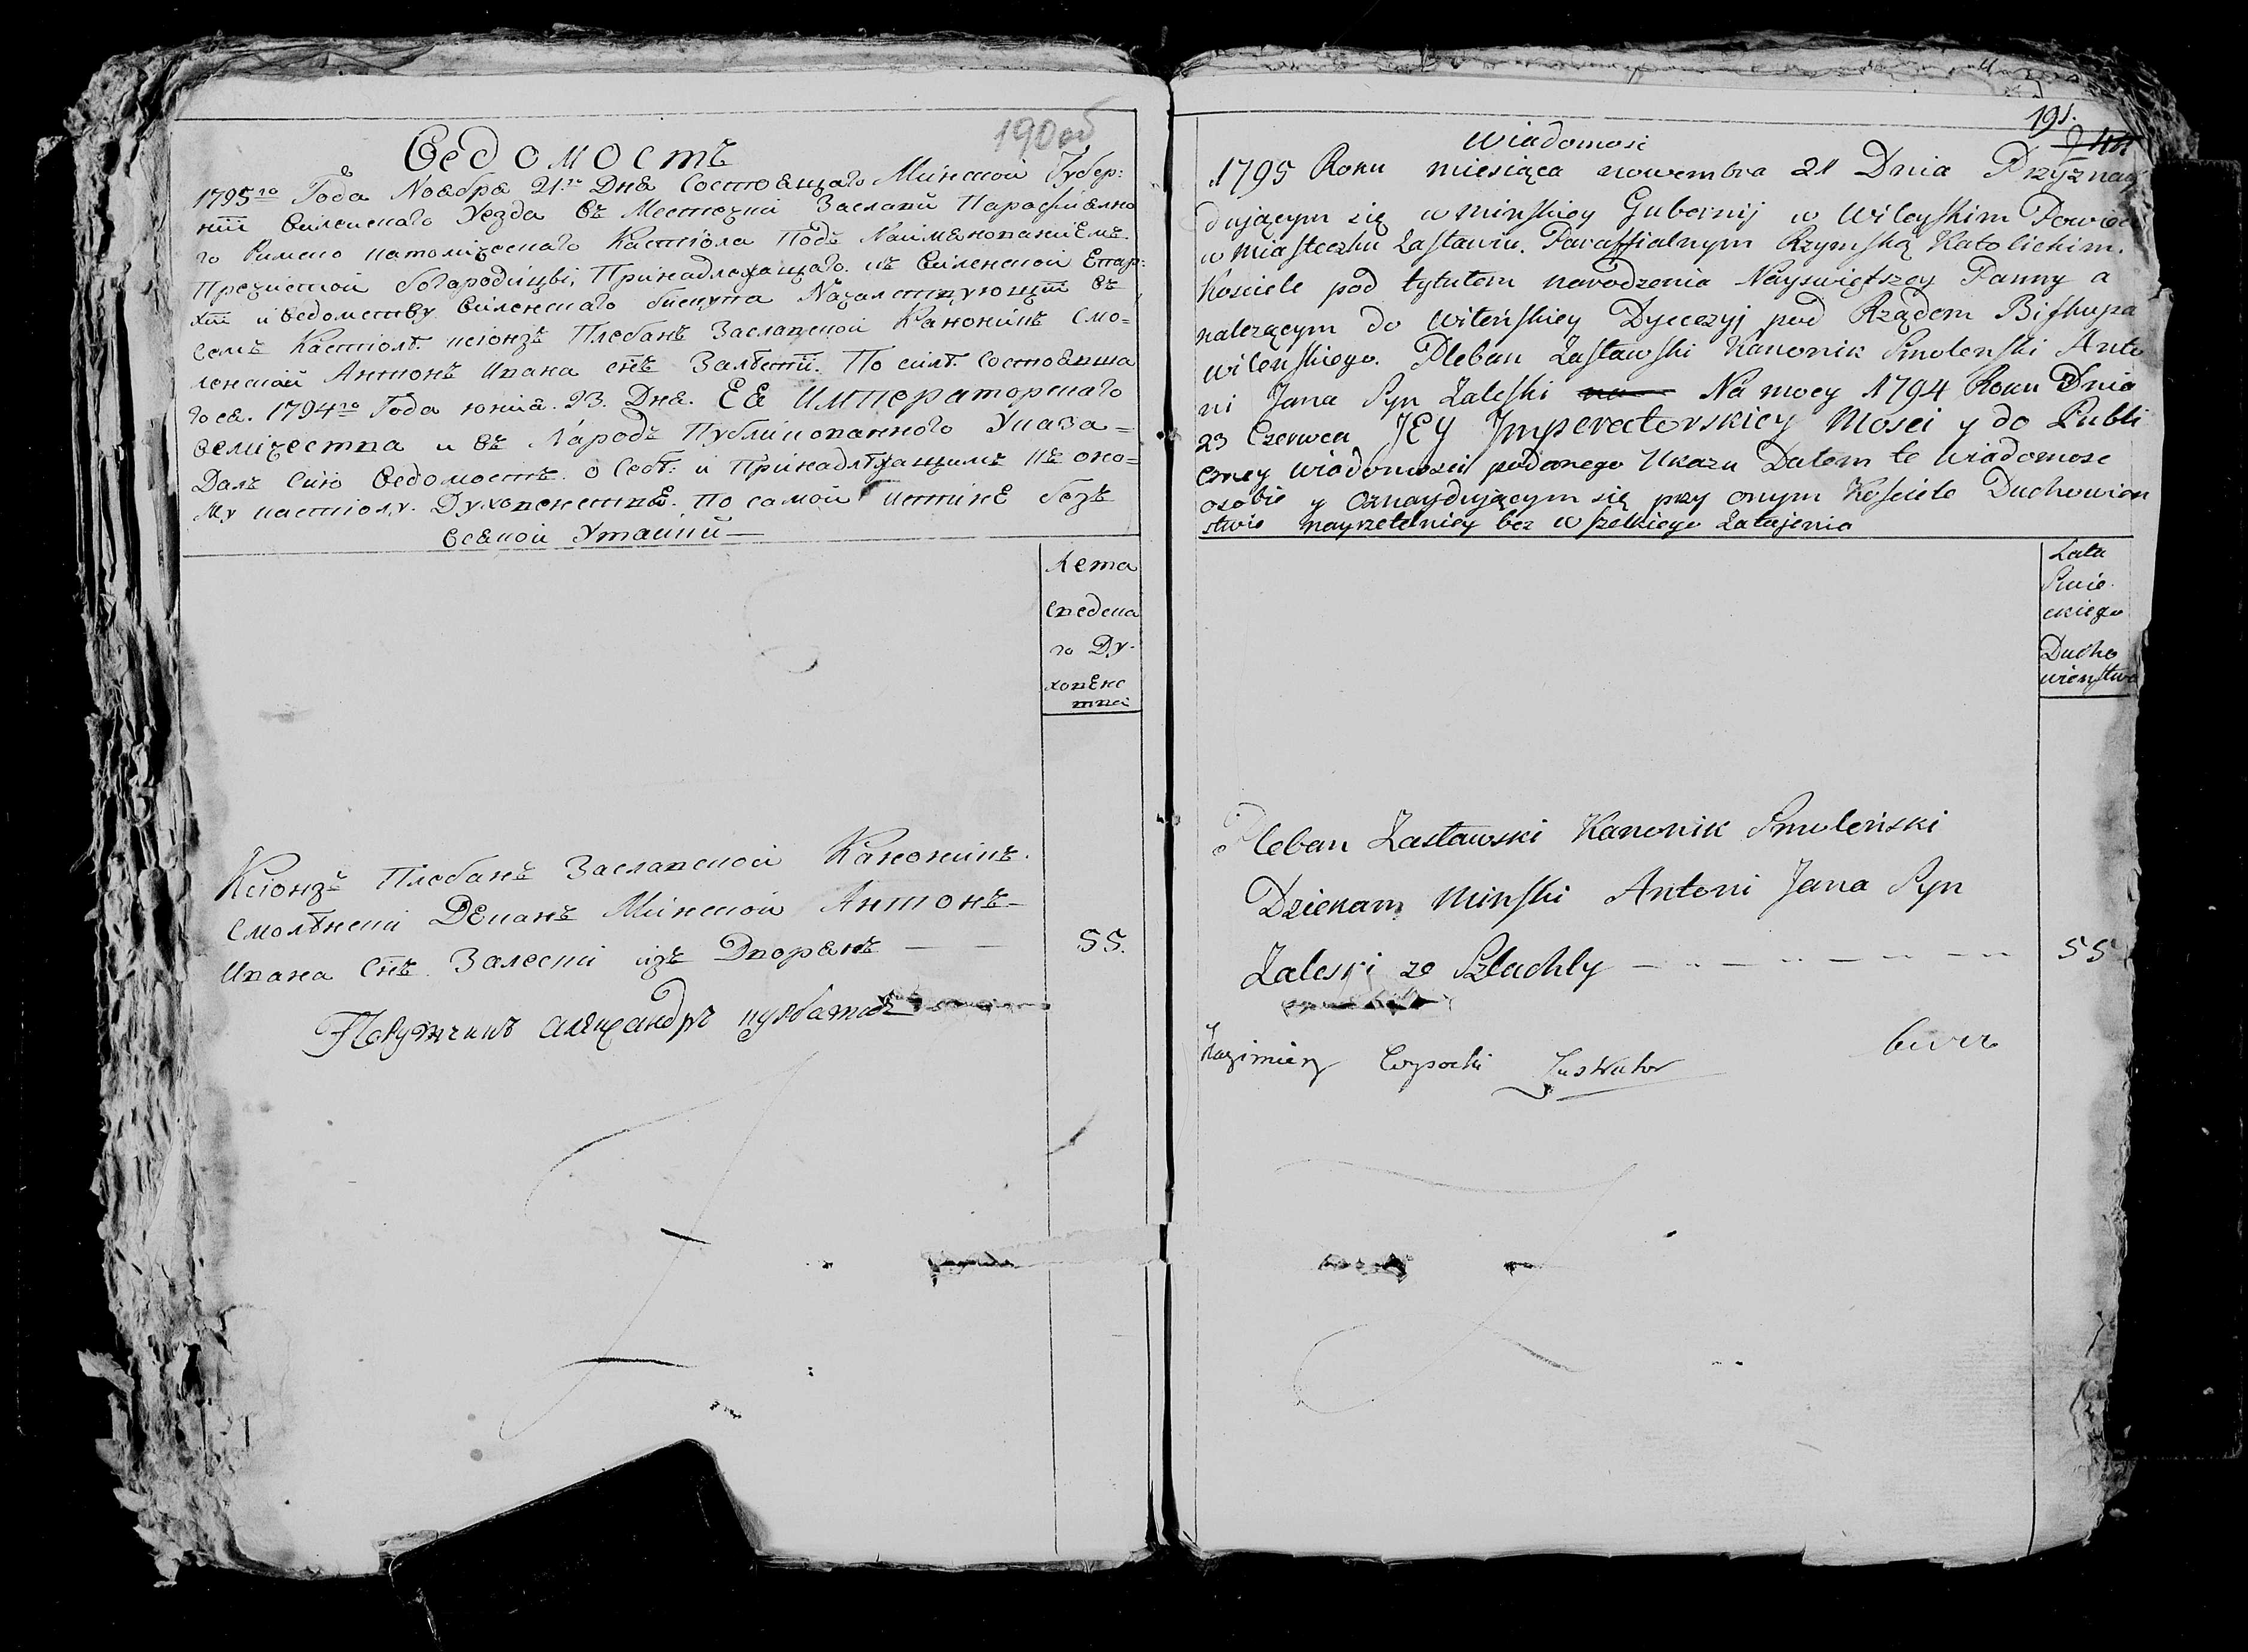 190 об
Ведомость
1795го Года Ноября 21го Дня Состоящаго Минской Губер:
нии Виленскаго Уезда въ Местечки Заславѣ Парафиялно
го Римско католическаго Костіола Подъ Наименованиемъ
Пречистой богородицы, Принадлежащаго къ Виленской Епар:
хии и ведомству Виленскаго бискупа Началствующий въ
семъ Костіолѣ ксіонзъ Плебанъ Заславской Каноникъ Смо=
ленской Антонъ Ивана снъ Залѣсти. По силѣ Состоявша
гося. 1794го Года юния. 23. Дня. Ея Императорскаго
величества и въ Народъ Публикованного Указа=
Далъ Сию Ведомость о Себѣ: и Принадлѣжащимъ къ оно=
му костіолу. Духовенствѣ. По самой истинѣ безъ
всякой Утайки —
Лета
Сведска
го Ду-
ховенс
тва
Ксіонзъ Плебанъ Заславской Каноникъ.
Смолѣнски Деканъ Минской Антонъ-
Ивана Снъ Залески изъ Дворянъ — —
55.
Порутчикъ александръ
191.
Wiadomosc
1795 Roku miesiąca nowembra 21 Dnia Przyznay
dującym się w Minskiey Gubernij w Wileyskim Powiec
w Miasteczku Zasławiu. Paraffialnym Rzymską Katolickim.
Kosciele pod tytułem narodzenia Nayswiętszey Panny a
nalezącym do Wileńskiey Dyecezyj pod Rządem Biskupa
wileńskiego. Pleban Zasławski Kanonik Smoleński Anto
ni Jana Syn Zaleski Na mocy 1794 Roku Dnia
23 Czerwca JEY Imperatorskiey Mosci y do Publi
czney wiadomosci podanego Ukazu Dałem te wiadomosc
osobie y oznaydującym się przy onym Kosciele Duchowien
stwie nayrzetelniey bez wszelkiego Zatajenia
Lata
Swie
ckiego
Ducho
wienstwa
Pleban Zasławski Kanonik Smoleński
Dziekam Minski Antoni Jana Syn
Zaleski ze Szlachty — — — —
55
Kazimierz Wysocki Lustrator